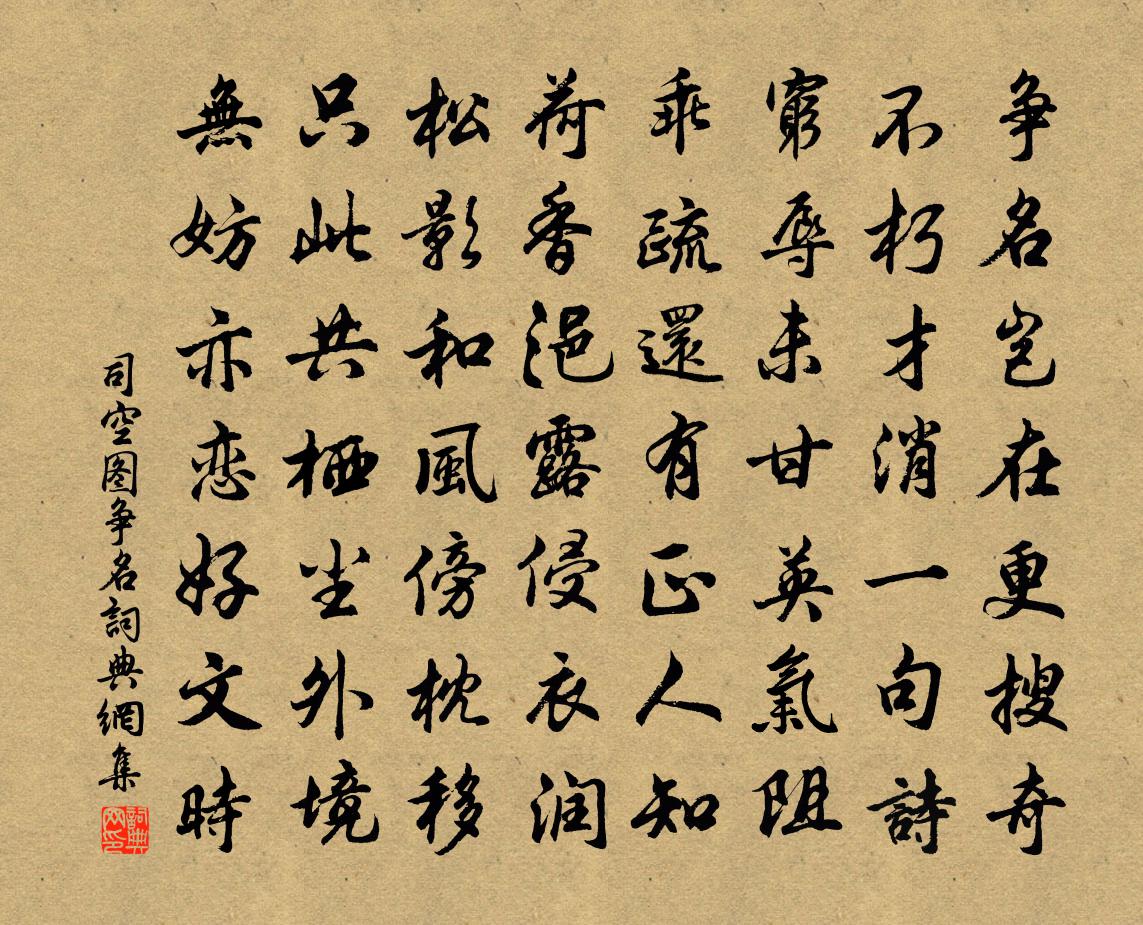 争名豈在更搜奇
不朽才消一句詩
窮辱未甘英氣阻
乖疏還有正人知
荷香浥露侵衣润
松影和風傍枕移
只此共栖尘外境
無妨亦恋好文時
司空图争名詞典網集
詞典网印